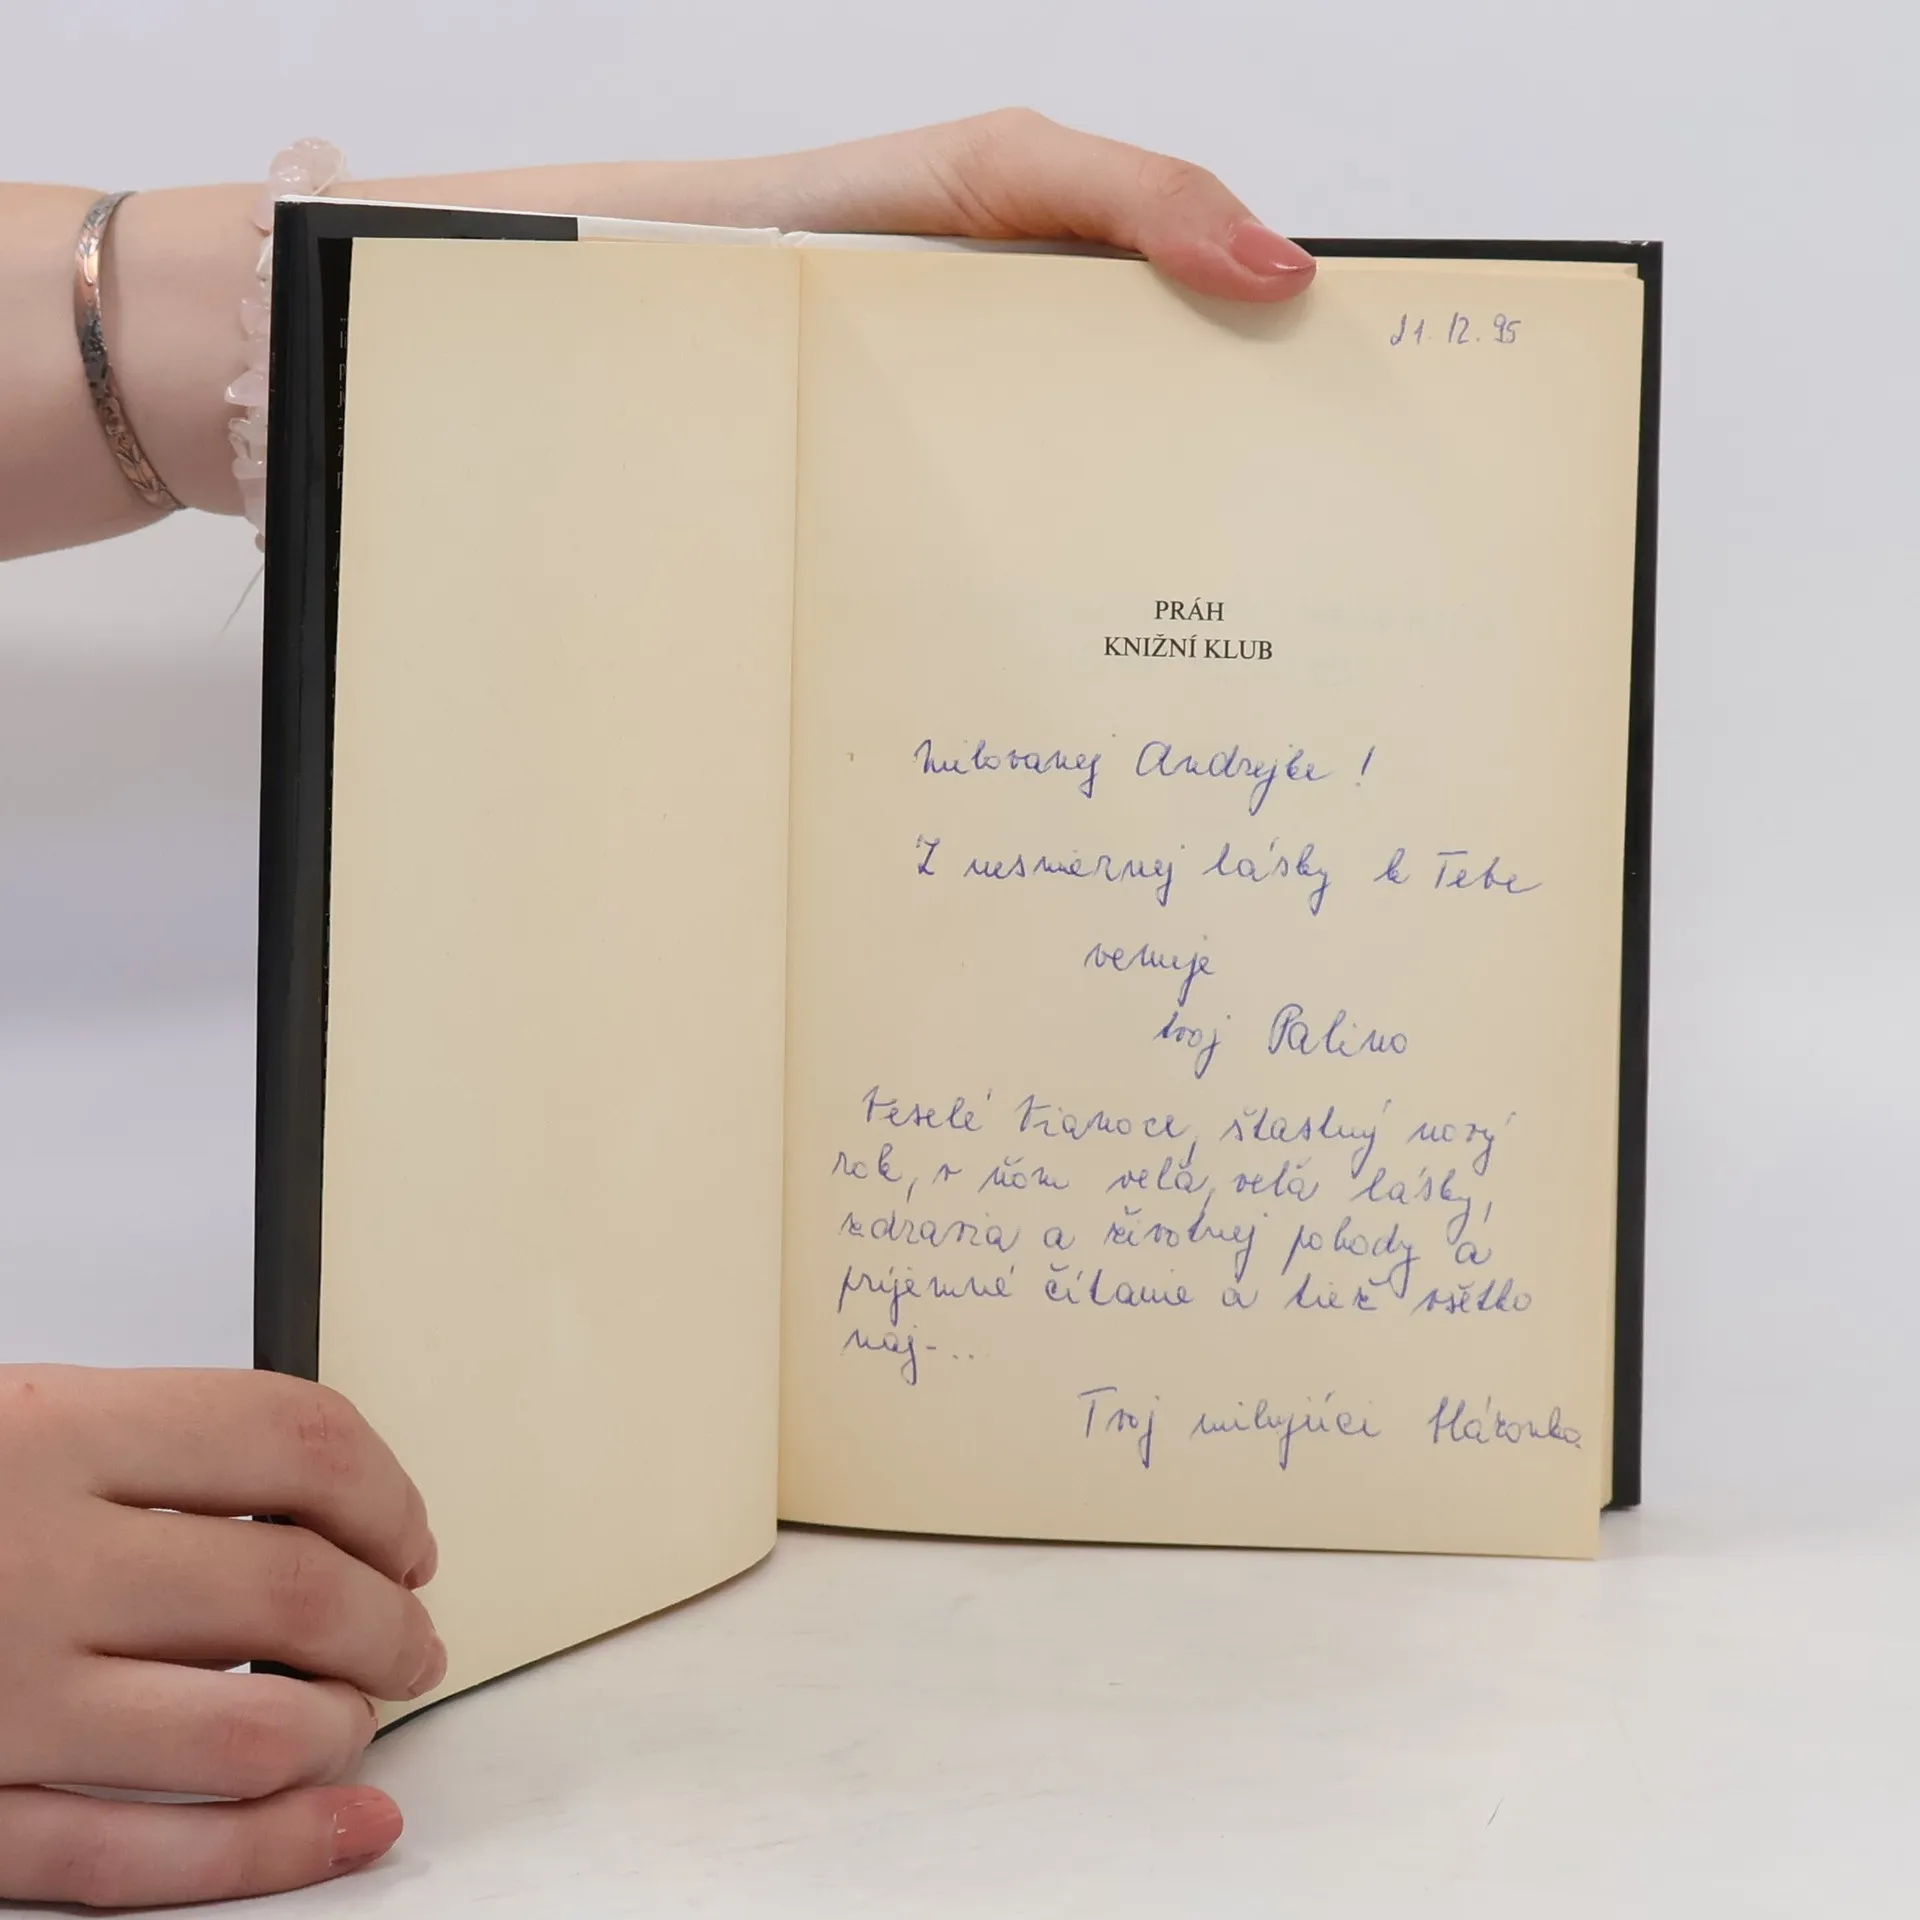 21. 12. 95
PRÁH
KNIŽNÍ KLUB
Milovanej Andrejke!
Z nesmiernej lásky k Tebe
venuje
tvoj Palino
Veselé Vianoce, štastný nový
rok, v ňom velă, velă lásky,
zdravia a životnej pohody a
príjemné čítanie a tiež všetko
naj-...
Tvoj milujúci